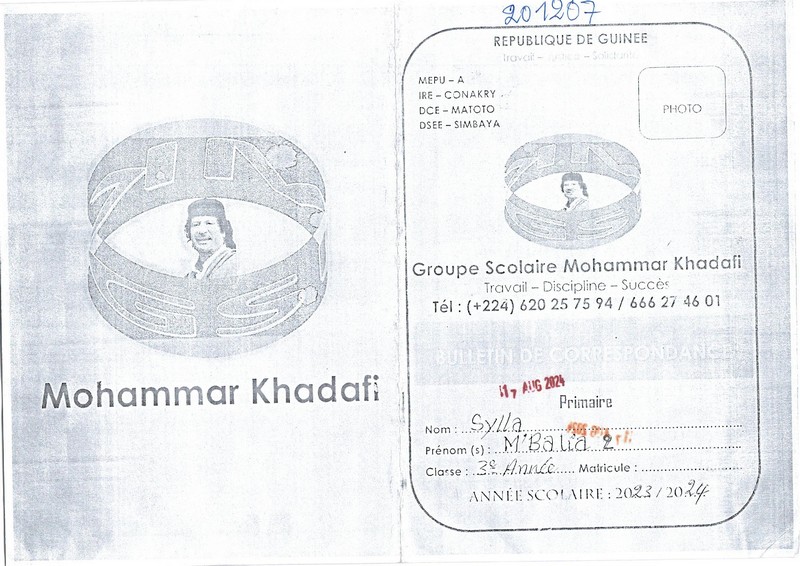 Mohammar Khadafi
201207
REPUBLIQUE DE GUINEE
Travail – Justice – Solidarité
MEPU – A
IRE – CONAKRY
DCE – MATOTO
DSEE – SIMBAYA
PHOTO
Groupe Scolaire Mohammar Khadafi
Travail – Discipline – Succès
Tél : (+224) 620 25 75 94 / 666 27 46 01
BULLETIN DE CORRESPONDANCE
17 AUG 2024
Primaire
Nom : Sylla
Prénom (s) : M'Balia 2
Classe : 3e Année Matricule :
ANNÉE SCOLAIRE : 2023 / 2024